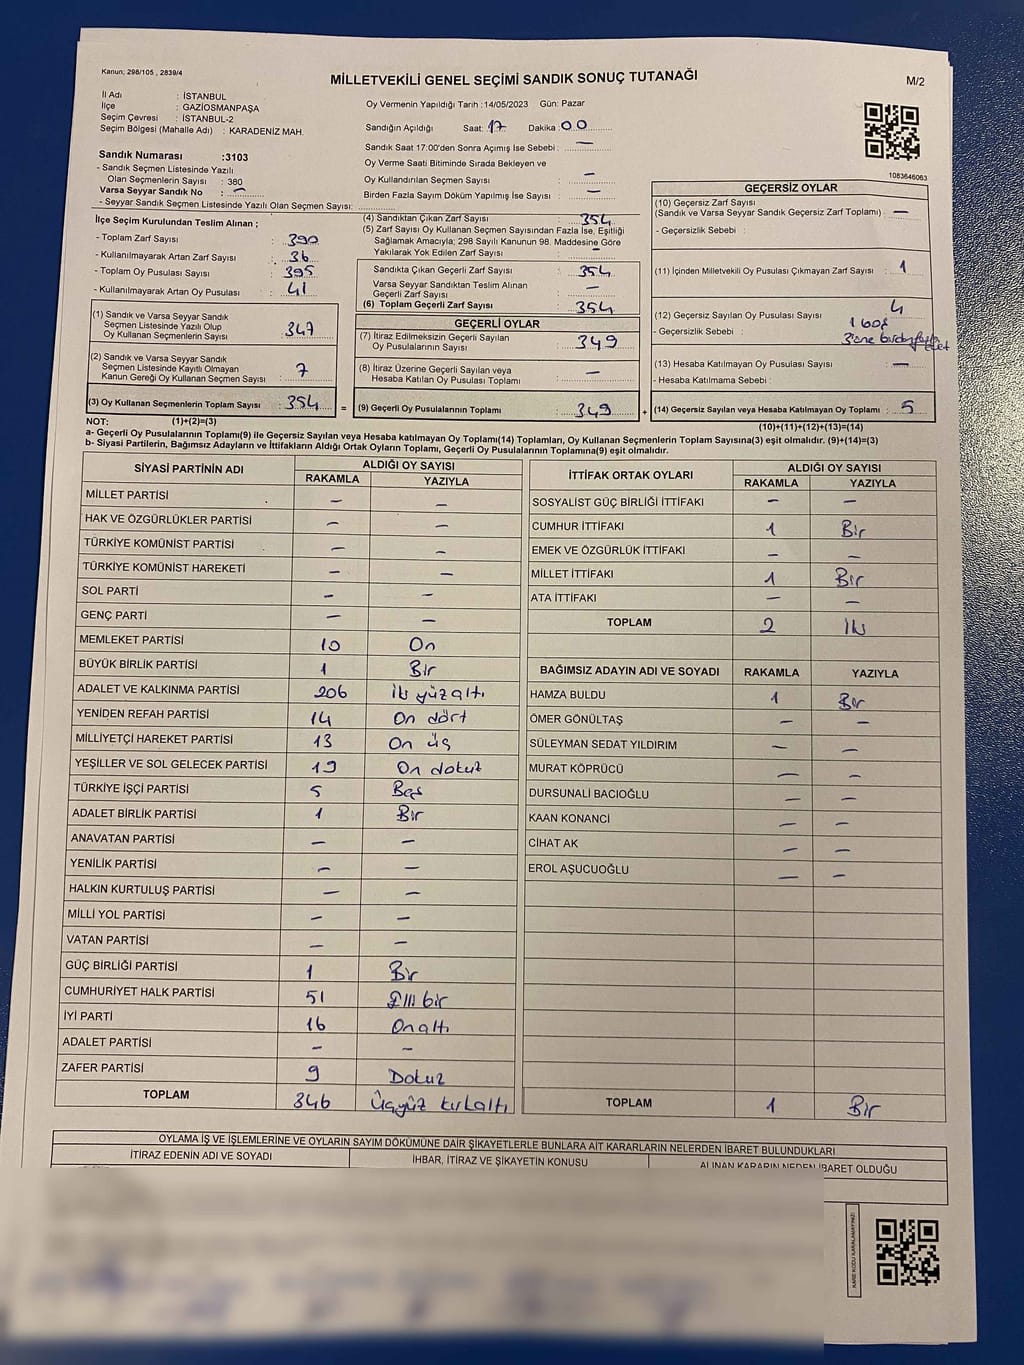 Kanun; 298/105 , 2839/4
MİLLETVEKİLİ GENEL SEÇİMİ SANDIK SONUÇ TUTANAĞI
M/2
İl Adı : İSTANBUL
İlçe : GAZİOSMANPAŞA
Seçim Çevresi : İSTANBUL-2
Seçim Bölgesi (Mahalle Adı) : KARADENİZ MAH.
Oy Vermenin Yapıldığı Tarih :14/05/2023 Gün: Pazar
Sandığın Açıldığı Saat: 17 Dakika: 00
Sandık Saat 17:00'den Sonra Açılmış İse Sebebi : —
Oy Verme Saati Bitiminde Sırada Bekleyen ve
Oy Kullandırılan Seçmen Sayısı : —
Birden Fazla Sayım Döküm Yapılmış İse Sayısı : —
1083646063
Sandık Numarası :3103
- Sandık Seçmen Listesinde Yazılı
Olan Seçmenlerin Sayısı : 380
Varsa Seyyar Sandık No : —
- Seyyar Sandık Seçmen Listesinde Yazılı Olan Seçmen Sayısı:
İlçe Seçim Kurulundan Teslim Alınan ;
- Toplam Zarf Sayısı : 390
- Kullanılmayarak Artan Zarf Sayısı : 36
- Toplam Oy Pusulası Sayısı : 395
- Kullanılmayarak Artan Oy Pusulası : 41
(1) Sandık ve Varsa Seyyar Sandık
Seçmen Listesinde Yazılı Olup
Oy Kullanan Seçmenlerin Sayısı : 347
(2) Sandık ve Varsa Seyyar Sandık
Seçmen Listesinde Kayıtlı Olmayan
Kanun Gereği Oy Kullanan Seçmen Sayısı : 7
(3) Oy Kullanan Seçmenlerin Toplam Sayısı : 354
(1)+(2)=(3)
(4) Sandıktan Çıkan Zarf Sayısı : 354
(5) Zarf Sayısı Oy Kullanan Seçmen Sayısından Fazla İse, Eşitliği
Sağlamak Amacıyla; 298 Sayılı Kanunun 98. Maddesine Göre
Yakılarak Yok Edilen Zarf Sayısı : —
Sandıkta Çıkan Geçerli Zarf Sayısı : 354
Varsa Seyyar Sandıktan Teslim Alınan
Geçerli Zarf Sayısı : —
(6) Toplam Geçerli Zarf Sayısı : 354
GEÇERLİ OYLAR
(7) İtiraz Edilmeksizin Geçerli Sayılan
Oy Pusulalarının Sayısı : 349
(8) İtiraz Üzerine Geçerli Sayılan veya
Hesaba Katılan Oy Pusulası Toplamı : —
= (9) Geçerli Oy Pusulalarının Toplamı : 349
GEÇERSİZ OYLAR
(10) Geçersiz Zarf Sayısı
(Sandık ve Varsa Seyyar Sandık Geçersiz Zarf Toplamı) : —
- Geçersizlik Sebebi :
(11) İçinden Milletvekili Oy Pusulası Çıkmayan Zarf Sayısı : 1
(12) Geçersiz Sayılan Oy Pusulası Sayısı : 4
- Geçersizlik Sebebi : 1 boş
(13) Hesaba Katılmayan Oy Pusulası Sayısı : —
- Hesaba Katılmama Sebebi :
+ (14) Geçersiz Sayılan veya Hesaba Katılmayan Oy Toplamı : 5
(10)+(11)+(12)+(13)=(14)
NOT:
a- Geçerli Oy Pusulalarının Toplamı(9) ile Geçersiz Sayılan veya Hesaba katılmayan Oy Toplamı(14) Toplamları, Oy Kullanan Seçmenlerin Toplam Sayısına(3) eşit olmalıdır. (9)+(14)=(3)
b- Siyasi Partilerin, Bağımsız Adayların ve İttifakların Aldığı Ortak Oyların Toplamı, Geçerli Oy Pusulalarının Toplamına(9) eşit olmalıdır.
SİYASİ PARTİNİN ADI ALDIĞI OY SAYISI
RAKAMLA YAZIYLA
MİLLET PARTİSİ — —
HAK VE ÖZGÜRLÜKLER PARTİSİ — —
TÜRKİYE KOMÜNİST PARTİSİ — —
TÜRKİYE KOMÜNİST HAREKETİ — —
SOL PARTİ — —
GENÇ PARTİ — —
MEMLEKET PARTİSİ 10 On
BÜYÜK BİRLİK PARTİSİ 1 Bir
ADALET VE KALKINMA PARTİSİ 206 İki yüz altı
YENİDEN REFAH PARTİSİ 14 On dört
MİLLİYETÇİ HAREKET PARTİSİ 13 On üç
YEŞİLLER VE SOL GELECEK PARTİSİ 19 On dokuz
TÜRKİYE İŞÇİ PARTİSİ 5 Beş
ADALET BİRLİK PARTİSİ 1 Bir
ANAVATAN PARTİSİ — —
YENİLİK PARTİSİ — —
HALKIN KURTULUŞ PARTİSİ — —
MİLLİ YOL PARTİSİ — —
VATAN PARTİSİ — —
GÜÇ BİRLİĞİ PARTİSİ 1 Bir
CUMHURİYET HALK PARTİSİ 51 Elli bir
İYİ PARTİ 16 On altı
ADALET PARTİSİ — —
ZAFER PARTİSİ 9 Dokuz
TOPLAM 346 Üçyüz kırkaltı
İTTİFAK ORTAK OYLARI ALDIĞI OY SAYISI
RAKAMLA YAZIYLA
SOSYALİST GÜÇ BİRLİĞİ İTTİFAKI — —
CUMHUR İTTİFAKI 1 Bir
EMEK VE ÖZGÜRLÜK İTTİFAKI — —
MİLLET İTTİFAKI 1 Bir
ATA İTTİFAKI — —
TOPLAM 2 İki
BAĞIMSIZ ADAYIN ADI VE SOYADI RAKAMLA YAZIYLA
HAMZA BULDU 1 Bir
ÖMER GÖNÜLTAŞ — —
SÜLEYMAN SEDAT YILDIRIM — —
MURAT KÖPRÜCÜ — —
DURSUNALİ BACIOĞLU — —
KAAN KONANCİ — —
CİHAT AK — —
EROL AŞUCUOĞLU — —
TOPLAM 1 Bir
OYLAMA İŞ VE İŞLEMLERİNE VE OYLARIN SAYIM DÖKÜMÜNE DAİR ŞİKAYETLERLE BUNLARA AİT KARARLARIN NELERDEN İBARET BULUNDUKLARI
İTİRAZ EDENİN ADI VE SOYADI İHBAR, İTİRAZ VE ŞİKAYETİN KONUSU ALINAN KARARIN NEDEN İBARET OLDUĞU
KARE KODU KARALAMAYINIZ!